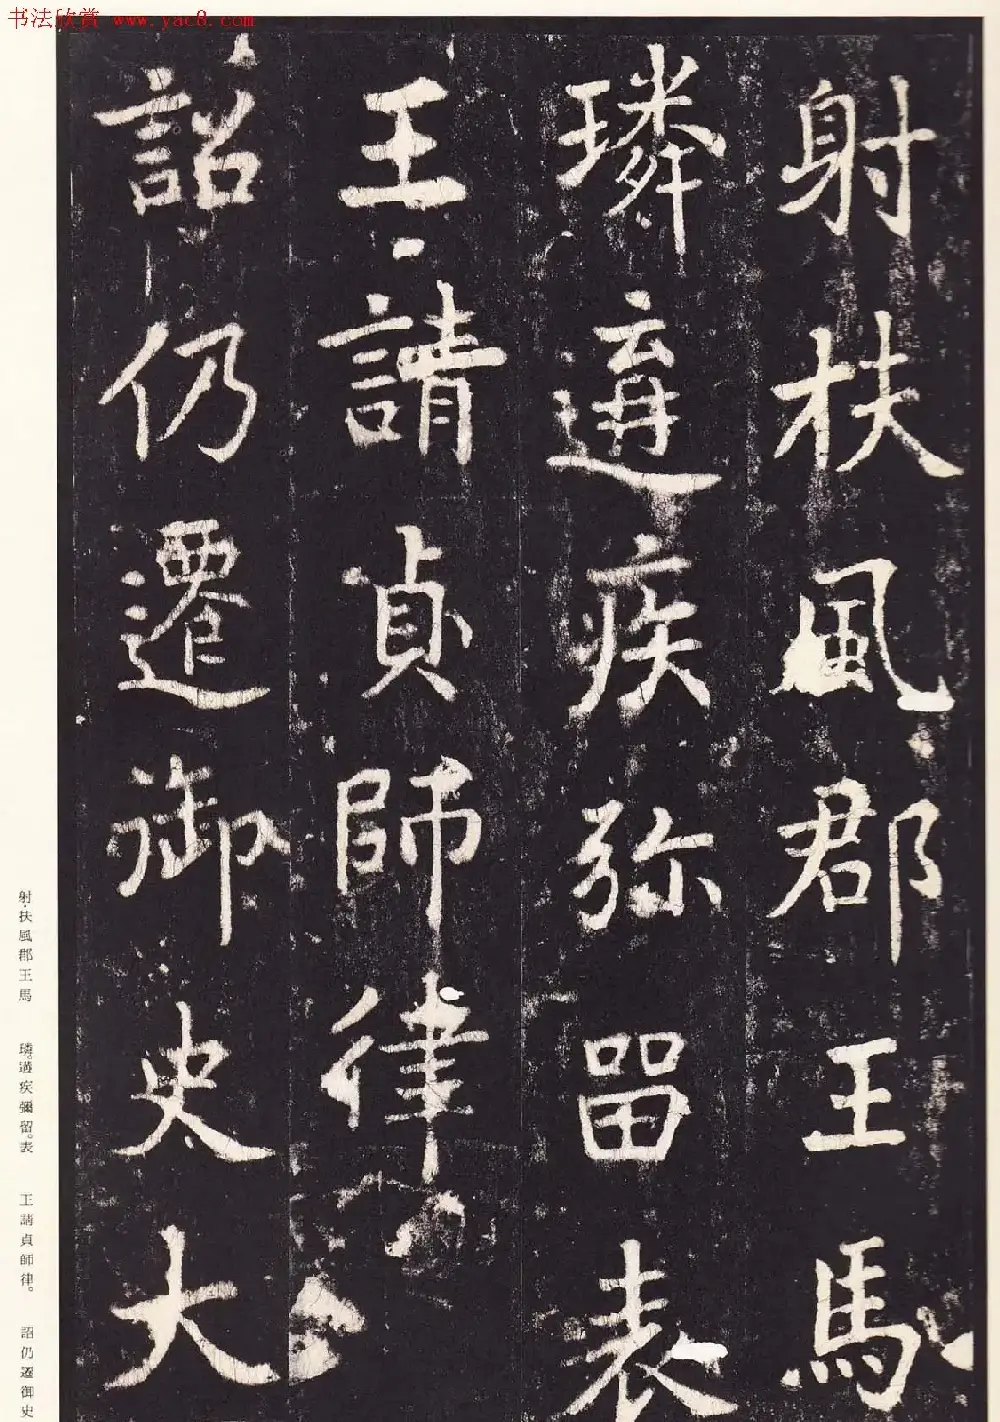 书法欣赏 www.yac8.com
射扶風郡王馬
璘遘疾弥留表
王請貞師律
詔仍遷御史大
射。扶風郡王馬
璘。遘疾彌留。表
王請貞師律。
詔仍遷御史